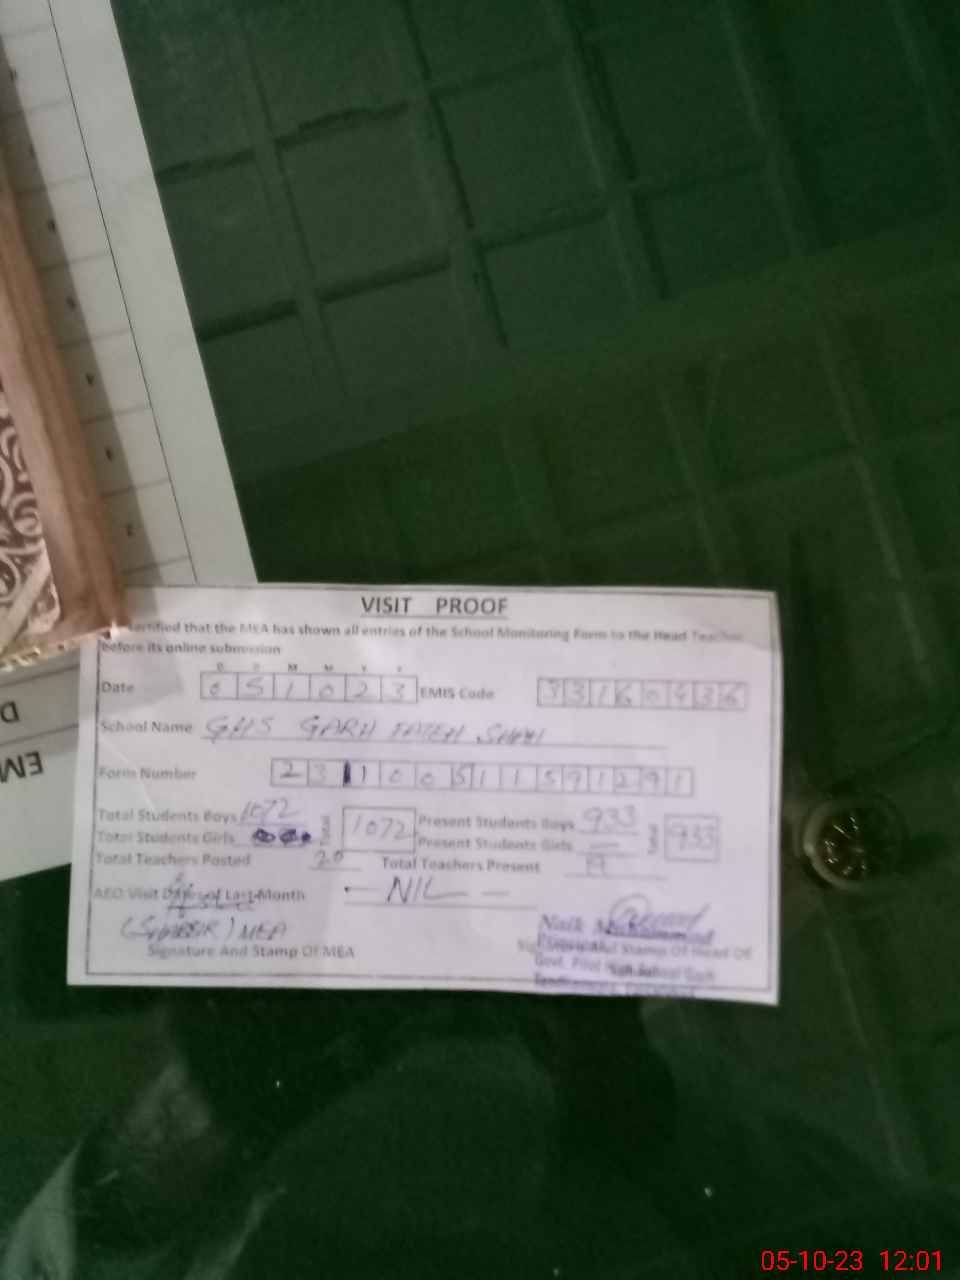 VISIT PROOF
certified that the MEA has shown all entries of the School Monitoring Form to the Head Teacher
before its online submission
D D M M Y Y
Date 0 5 1 0 2 3 EMIS Code 3 3 1 6 0 4 3 6
School Name GHS GARH FATEH SHAH
Form Number 2 3 1 1 0 0 5 1 1 5 9 1 2 9 1
Total Students Boys 1072 Total 1072 Present Students Boys 933 933
Total Students Girls Present Students Girls —
Total Teachers Posted 20 Total Teachers Present
AEO Visit Dates of Last Month — NIL —
MEA
Signature And Stamp Of MEA
Signature And Stamp Of Head Of
Govt.
D
EM
05-10-23 12:01